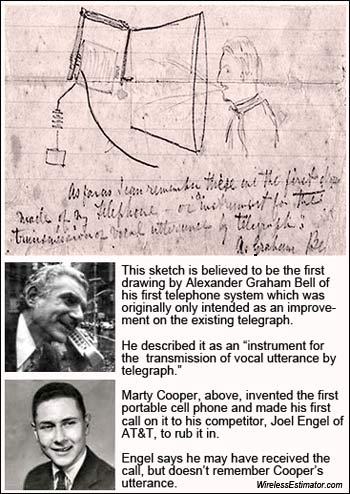 As far as I can remember these are the first
made of my telephone — or "instrument for the
transmission of vocal utterance by telegraph".
A. Graham Bell
This sketch is believed to be the first
drawing by Alexander Graham Bell of
his first telephone system which was
originally only intended as an improve-
ment on the existing telegraph.
He described it as an "instrument for
the transmission of vocal utterance by
telegraph."
Marty Cooper, above, invented the first
portable cell phone and made his first
call on it to his competitor, Joel Engel of
AT&T, to rub it in.
Engel says he may have received the
call, but doesn't remember Cooper's
utterance.
WirelessEstimator.com